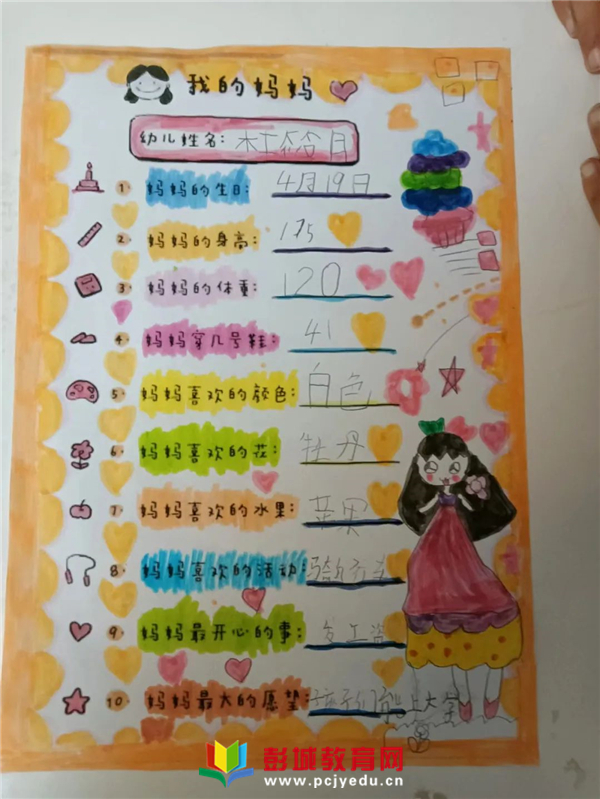 我的妈妈
幼儿姓名：
1. 妈妈的生日： 4月19日
2. 妈妈的身高： 175
3. 妈妈的体重： 120
4. 妈妈穿几号鞋： 41
5. 妈妈喜欢的颜色： 白色
6. 妈妈喜欢的花： 牡丹
7. 妈妈喜欢的水果： 苹果
8. 妈妈喜欢的活动：
9. 妈妈最开心的事： 发工资
10. 妈妈最大的愿望：孩子们能上大学
彭城教育网
www.pcjyedu.cn